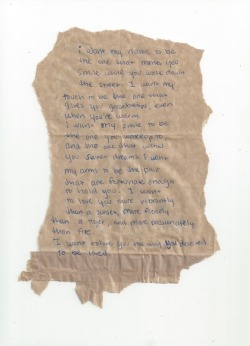 i want my name to be
the one that makes you
smile while you walk down
the street. I want my
touch to be the one that
gives you goosebumps, even
when you're warm
I want my smile to be
the one you wake up to
and the one that
you sweet dreams I want
my arms to be the pair
that are fortunate enough
to hold you. I want
to love you more vibrantly
than a sunset, more fiercely
than a tiger, and more passionately
than fire
I want to love you the way you deserved
to be loved.